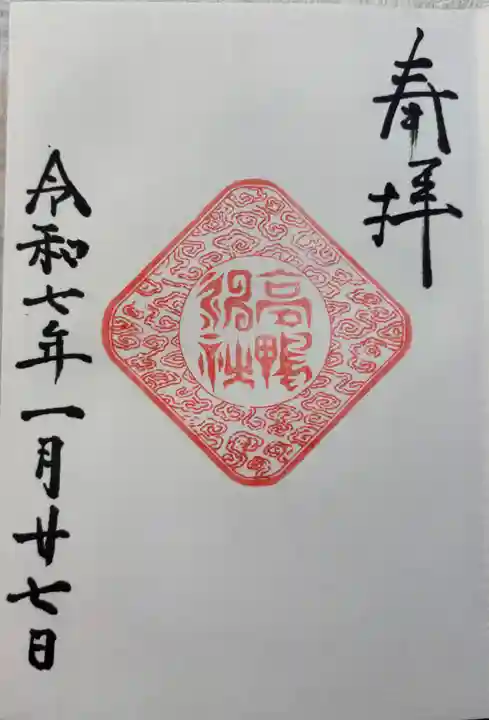 奉拝
高鴨
神社
令和七年一月廿七日